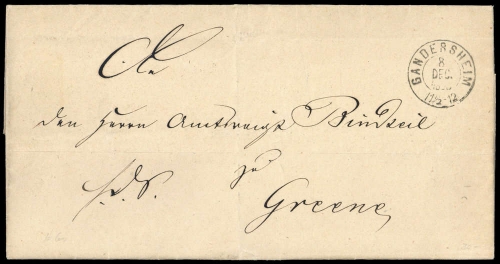 An
GANDERSHEIM
8
DEC.
11½-12
den Herrn Amtsvoigt Bindseil
zu
Greene